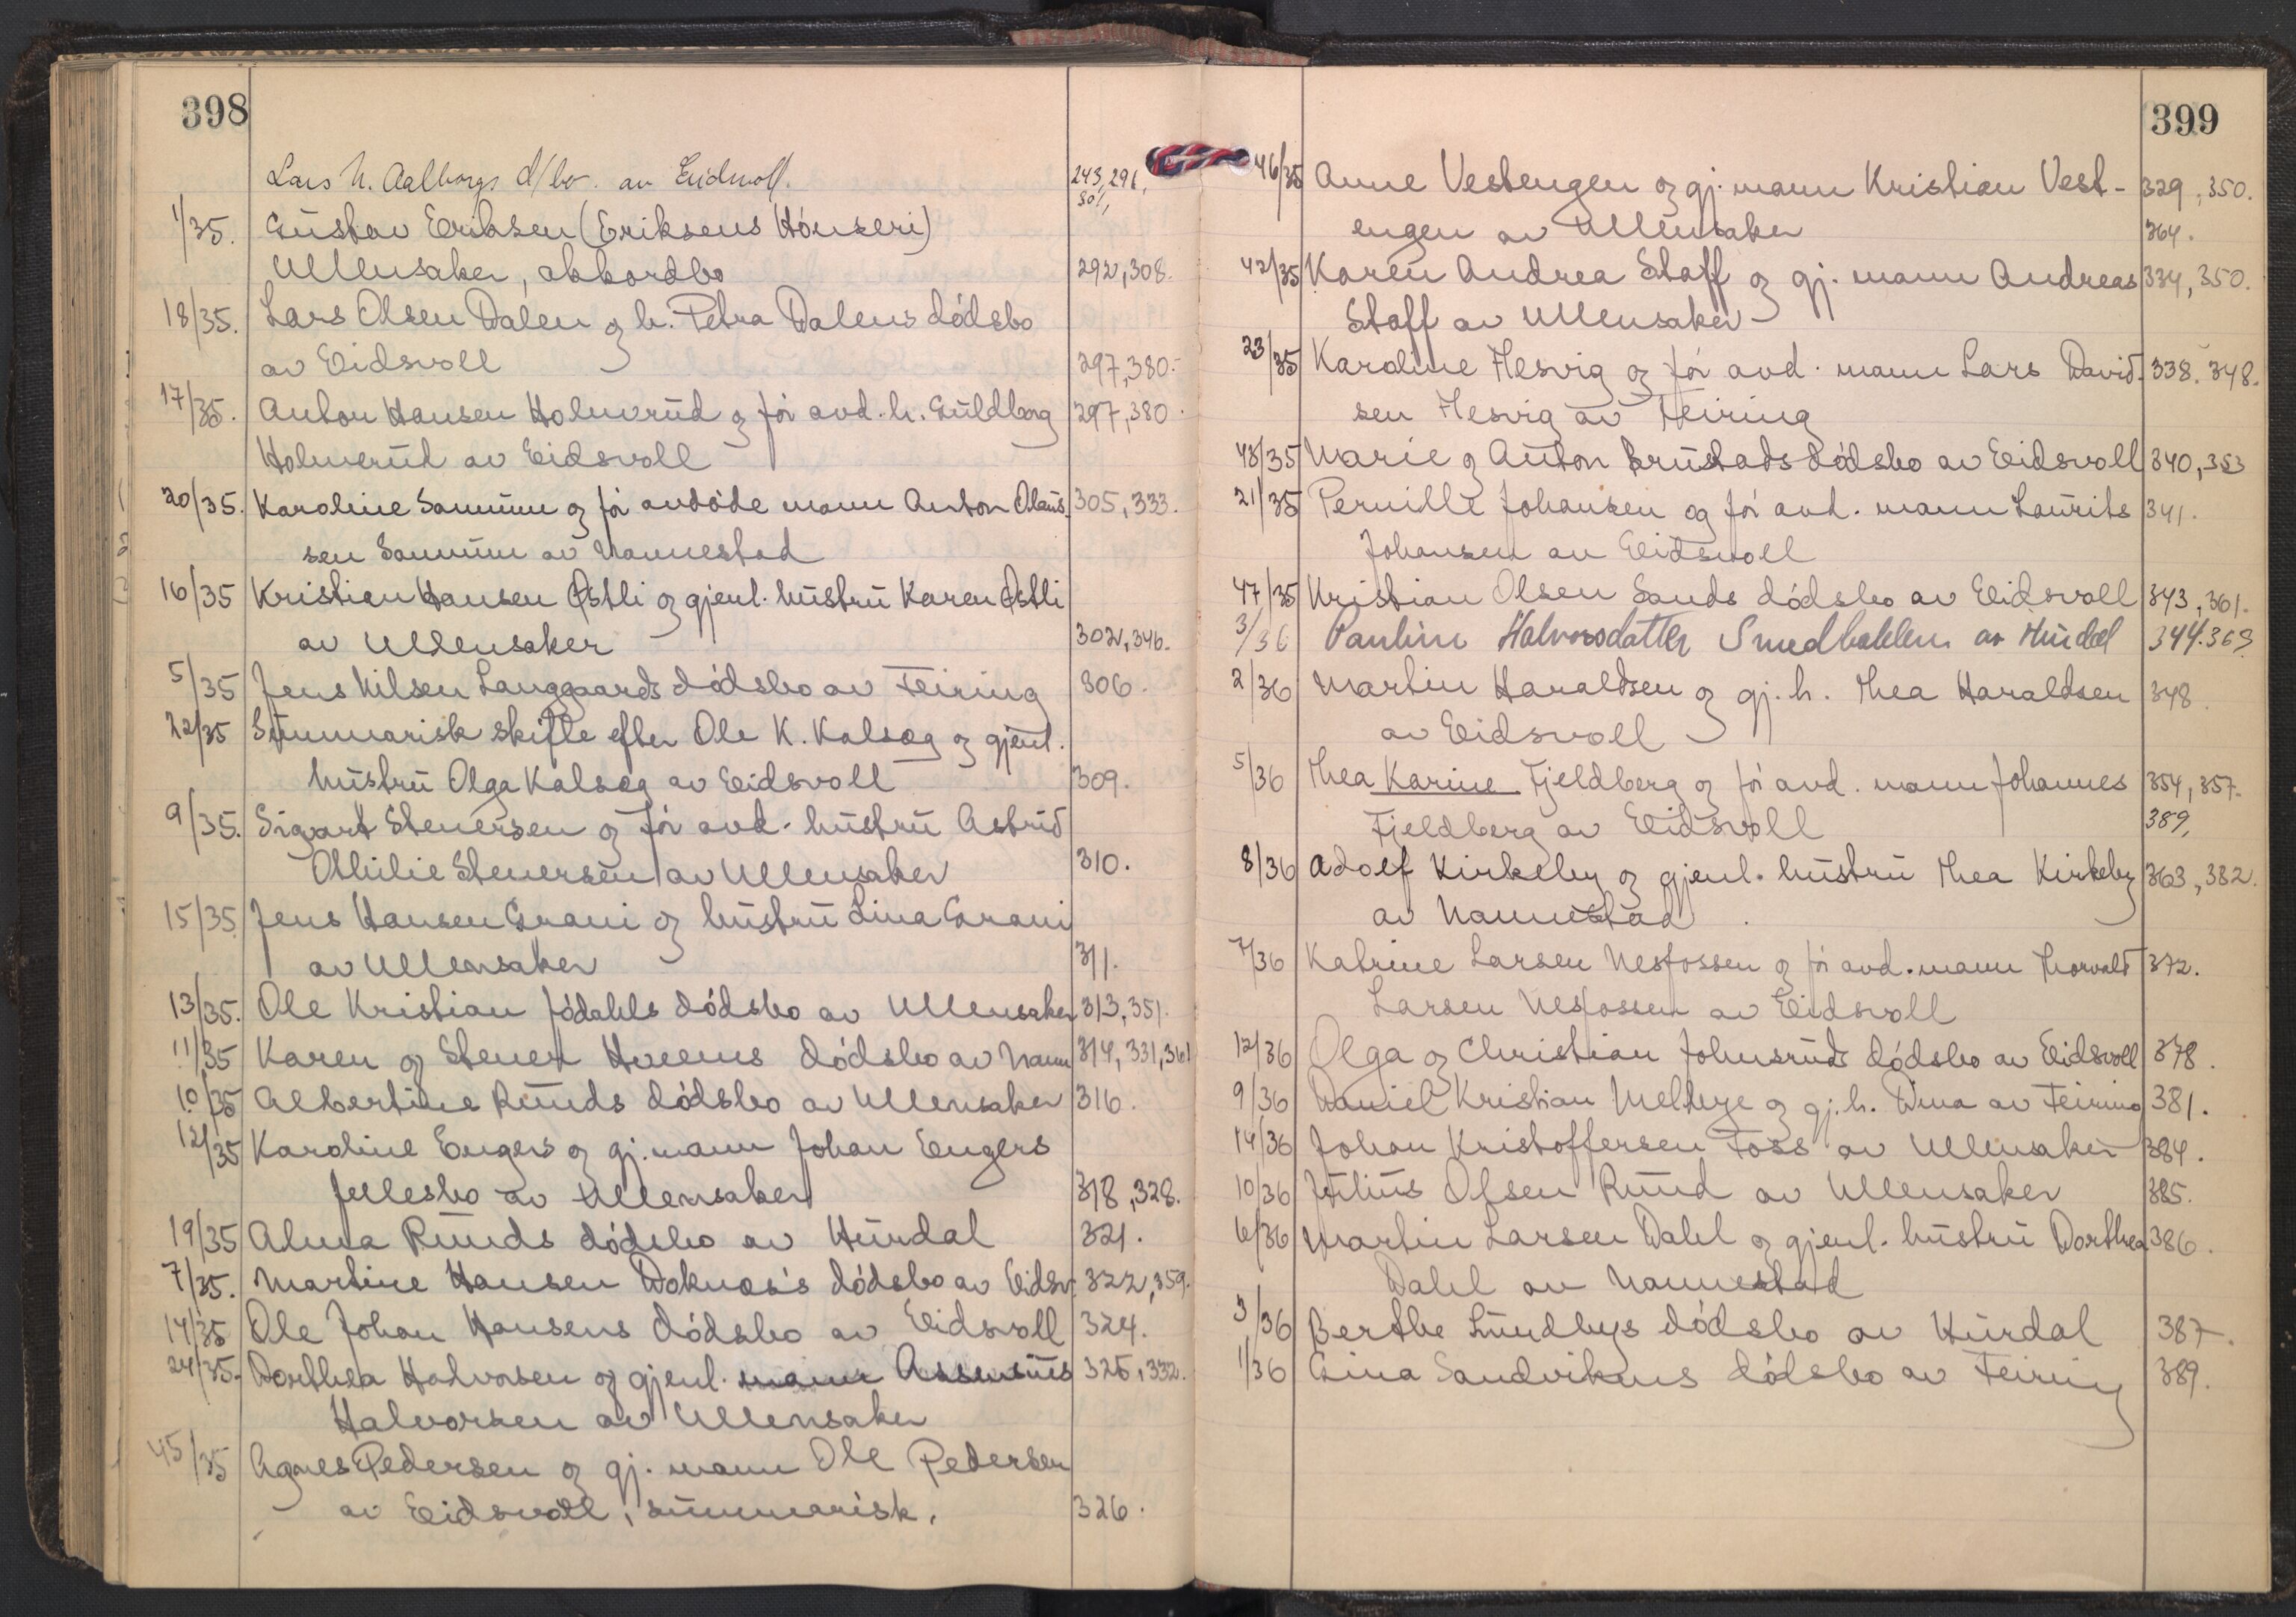 398
Lars N. Aalborgs d/bo. av Eidsvoll. 243, 291,
301,
1/35. Gustav Eriksen (Eriksens Hønseri)
Ullensaker, akkordbo 292, 308.
18/35. Lars Olsen Dalen og h. Petra Dalens dødsbo
av Eidsvoll 297, 380.
17/35. Anton Hansen Holmerud og før avd. h. Guldborg 297, 380.
Holmerud av Eidsvoll
20/35. Karoline Sannum og før avdøde mann Anton Olaus- 305, 333.
sen Sannum av Nannestad
16/35 Kristian Hansen Østli og gjenl. hustru Karen Østli
av Ullensaker 302, 346.
5/35 Jens Nilsen Langgaards dødsbo av Feiring 306.
22/35 Summarisk skifte efter Ole K. Kalsæg og gjenl.
hustru Olga Kalsæg av Eidsvoll 309.
9/35. Sigvart Stenersen og før avd. hustru Astrid
Othilie Stenersen av Ullensaker 310.
15/35 Jens Hansen Grani og hustru Lina Grani
av Ullensaker 311.
13/35. Ole Kristian Jødahls dødsbo av Ullensaker 313, 351.
11/35 Karen og Stener Hveems dødsbo av Nann 314, 331, 361
10/35 Albertine Ruuds dødsbo av Ullensaker 316.
12/35 Karoline Engers og gj. mann Johan Engers
fellesbo av Ullensaker 318, 328.
19/35 Alma Ruuds dødsbo av Hurdal 321.
7/35. Martine Hansen Doknæs's dødsbo av Eidsv. 322, 359.
14/35 Ole Johan Hansens dødsbo av Eidsvoll 324.
24/35. Dorthea Halvorsen og gjenl. mann Assensius 325, 332.
Halvorsen av Ullensaker
45/35 Agnes Pedersen og gj. mann Ole Pedersen
av Eidsvoll, summarisk. 326.
399
46/35 Anne Vestengen og gj. mann Kristian Vest- 329, 350.
engen av Ullensaker 364.
42/35 Karen Andrea Staff og gj. mann Andreas 334, 350.
Staff av Ullensaker
23/35 Karoline Hesvig og før avd. mann Lars David- 338. 348.
sen Hesvig av Feiring
48/35 Marie og Anton Brustads dødsbo av Eidsvoll 340, 353
21/35 Pernille Johansen og før avd. mann Laurits 341.
Johansen av Eidsvoll
47/35 Kristian Olsen Sands dødsbo av Eidsvoll 343, 361.
3/36 Pauline Halvorsdatter Smedbakken av Hurdal 344. 363
2/36 Martin Haraldsen og gj. h. Thea Haraldsen 348.
av Eidsvoll
5/36 Thea Karine Fjeldberg og før avd. mann Johannes 354, 357.
Fjeldberg av Eidsvoll 389,
8/36 Adolf Kirkeby og gjenl. hustru Thea Kirkeby 363, 382.
av Nannestad.
7/36 Katrine Larsen Nesfossen og før avd. mann Thorvald 372.
Larsen Nesfossen av Eidsvoll
12/36 Olga og Christian Johnsruds dødsbo av Eidsvoll 378.
9/36 Daniel Kristian Melbye og gj. h. Dina av Feiring 381.
14/36 Johan Kristoffersen Foss av Ullensaker 384.
10/36 Julius Olsen Ruud av Ullensaker 385.
6/36 Martin Larsen Dahl og gjenl. hustru Dorthea 386.
Dahl av Nannestad
3/36 Berthe Lundbys dødsbo av Hurdal 387.
1/36 Gina Sandvikens dødsbo av Feiring 389.